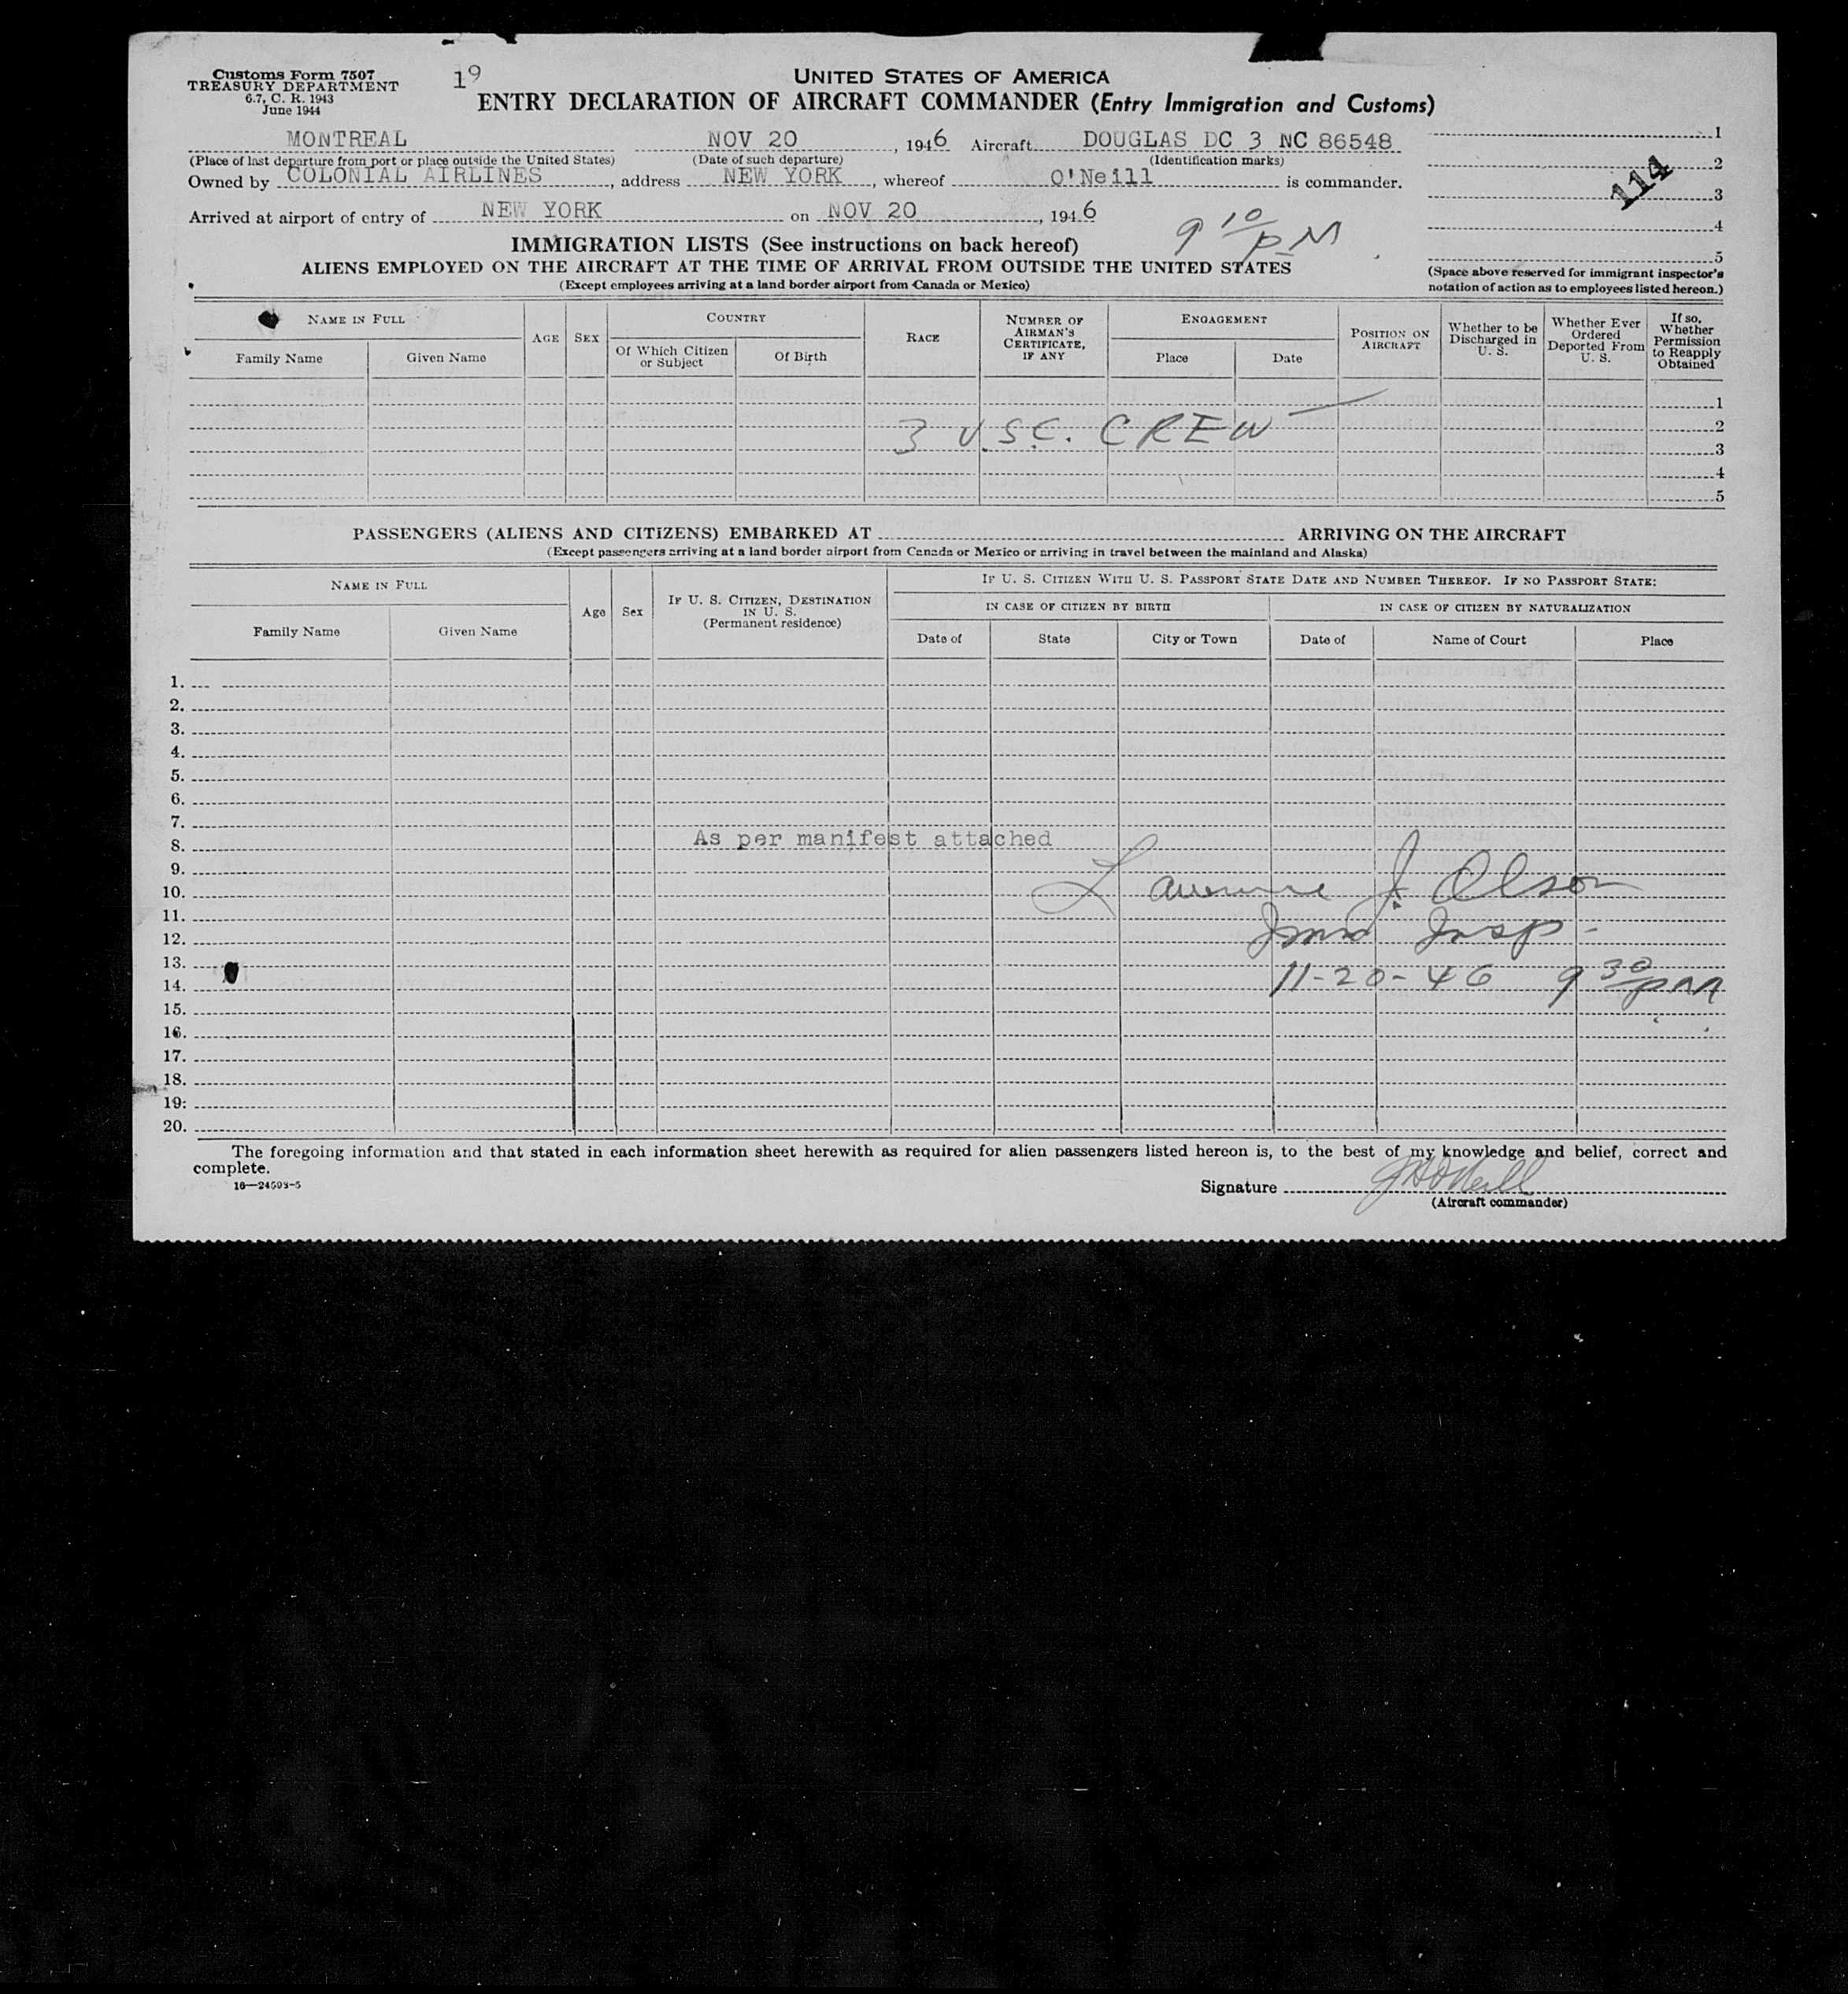 Customs Form 7507
TREASURY DEPARTMENT
6.7, C. R. 1943
June 1944
19
UNITED STATES OF AMERICA
ENTRY DECLARATION OF AIRCRAFT COMMANDER (Entry Immigration and Customs)
MONTREAL NOV 20, 1946 Aircraft DOUGLAS DC 3 NC 86548
(Place of last departure from port or place outside the United States) (Date of such departure) (Identification marks)
Owned by COLONIAL AIRLINES, address NEW YORK, whereof O'Neill is commander.
Arrived at airport of entry of NEW YORK on NOV 20, 1946
9 10 PM
1
2
3
4
5
114
(Space above reserved for immigrant inspector's
notation of action as to employees listed hereon.)
IMMIGRATION LISTS (See instructions on back hereof)
ALIENS EMPLOYED ON THE AIRCRAFT AT THE TIME OF ARRIVAL FROM OUTSIDE THE UNITED STATES
(Except employees arriving at a land border airport from Canada or Mexico)
NAME IN FULL
Family Name Given Name
AGE SEX
COUNTRY
Of Which Citizen or Subject Of Birth
RACE
NUMBER OF AIRMAN'S CERTIFICATE, IF ANY
ENGAGEMENT
Place Date
POSITION ON AIRCRAFT
Whether to be Discharged in U. S.
Whether Ever Ordered Deported From U. S.
If so, Whether Permission to Reapply Obtained
1
2
3
4
5
3 U.S.C. CREW
PASSENGERS (ALIENS AND CITIZENS) EMBARKED AT ARRIVING ON THE AIRCRAFT
(Except passengers arriving at a land border airport from Canada or Mexico or arriving in travel between the mainland and Alaska)
NAME IN FULL
Family Name Given Name
Age Sex
IF U. S. CITIZEN, DESTINATION IN U. S. (Permanent residence)
IF U. S. CITIZEN WITH U. S. PASSPORT STATE DATE AND NUMBER THEREOF. IF NO PASSPORT STATE:
IN CASE OF CITIZEN BY BIRTH IN CASE OF CITIZEN BY NATURALIZATION
Date of State City or Town Date of Name of Court Place
1.
2.
3.
4.
5.
6.
7.
8. As per manifest attached
9.
10. Lawrence J. Olson
11.
12. Imm Insp-
13.
14. 11-20-46 9 30 PM
15.
16.
17.
18.
19.
20.
The foregoing information and that stated in each information sheet herewith as required for alien passengers listed hereon is, to the best of my knowledge and belief, correct and
complete.
16—24593-5
Signature JHO'Neill
(Aircraft commander)